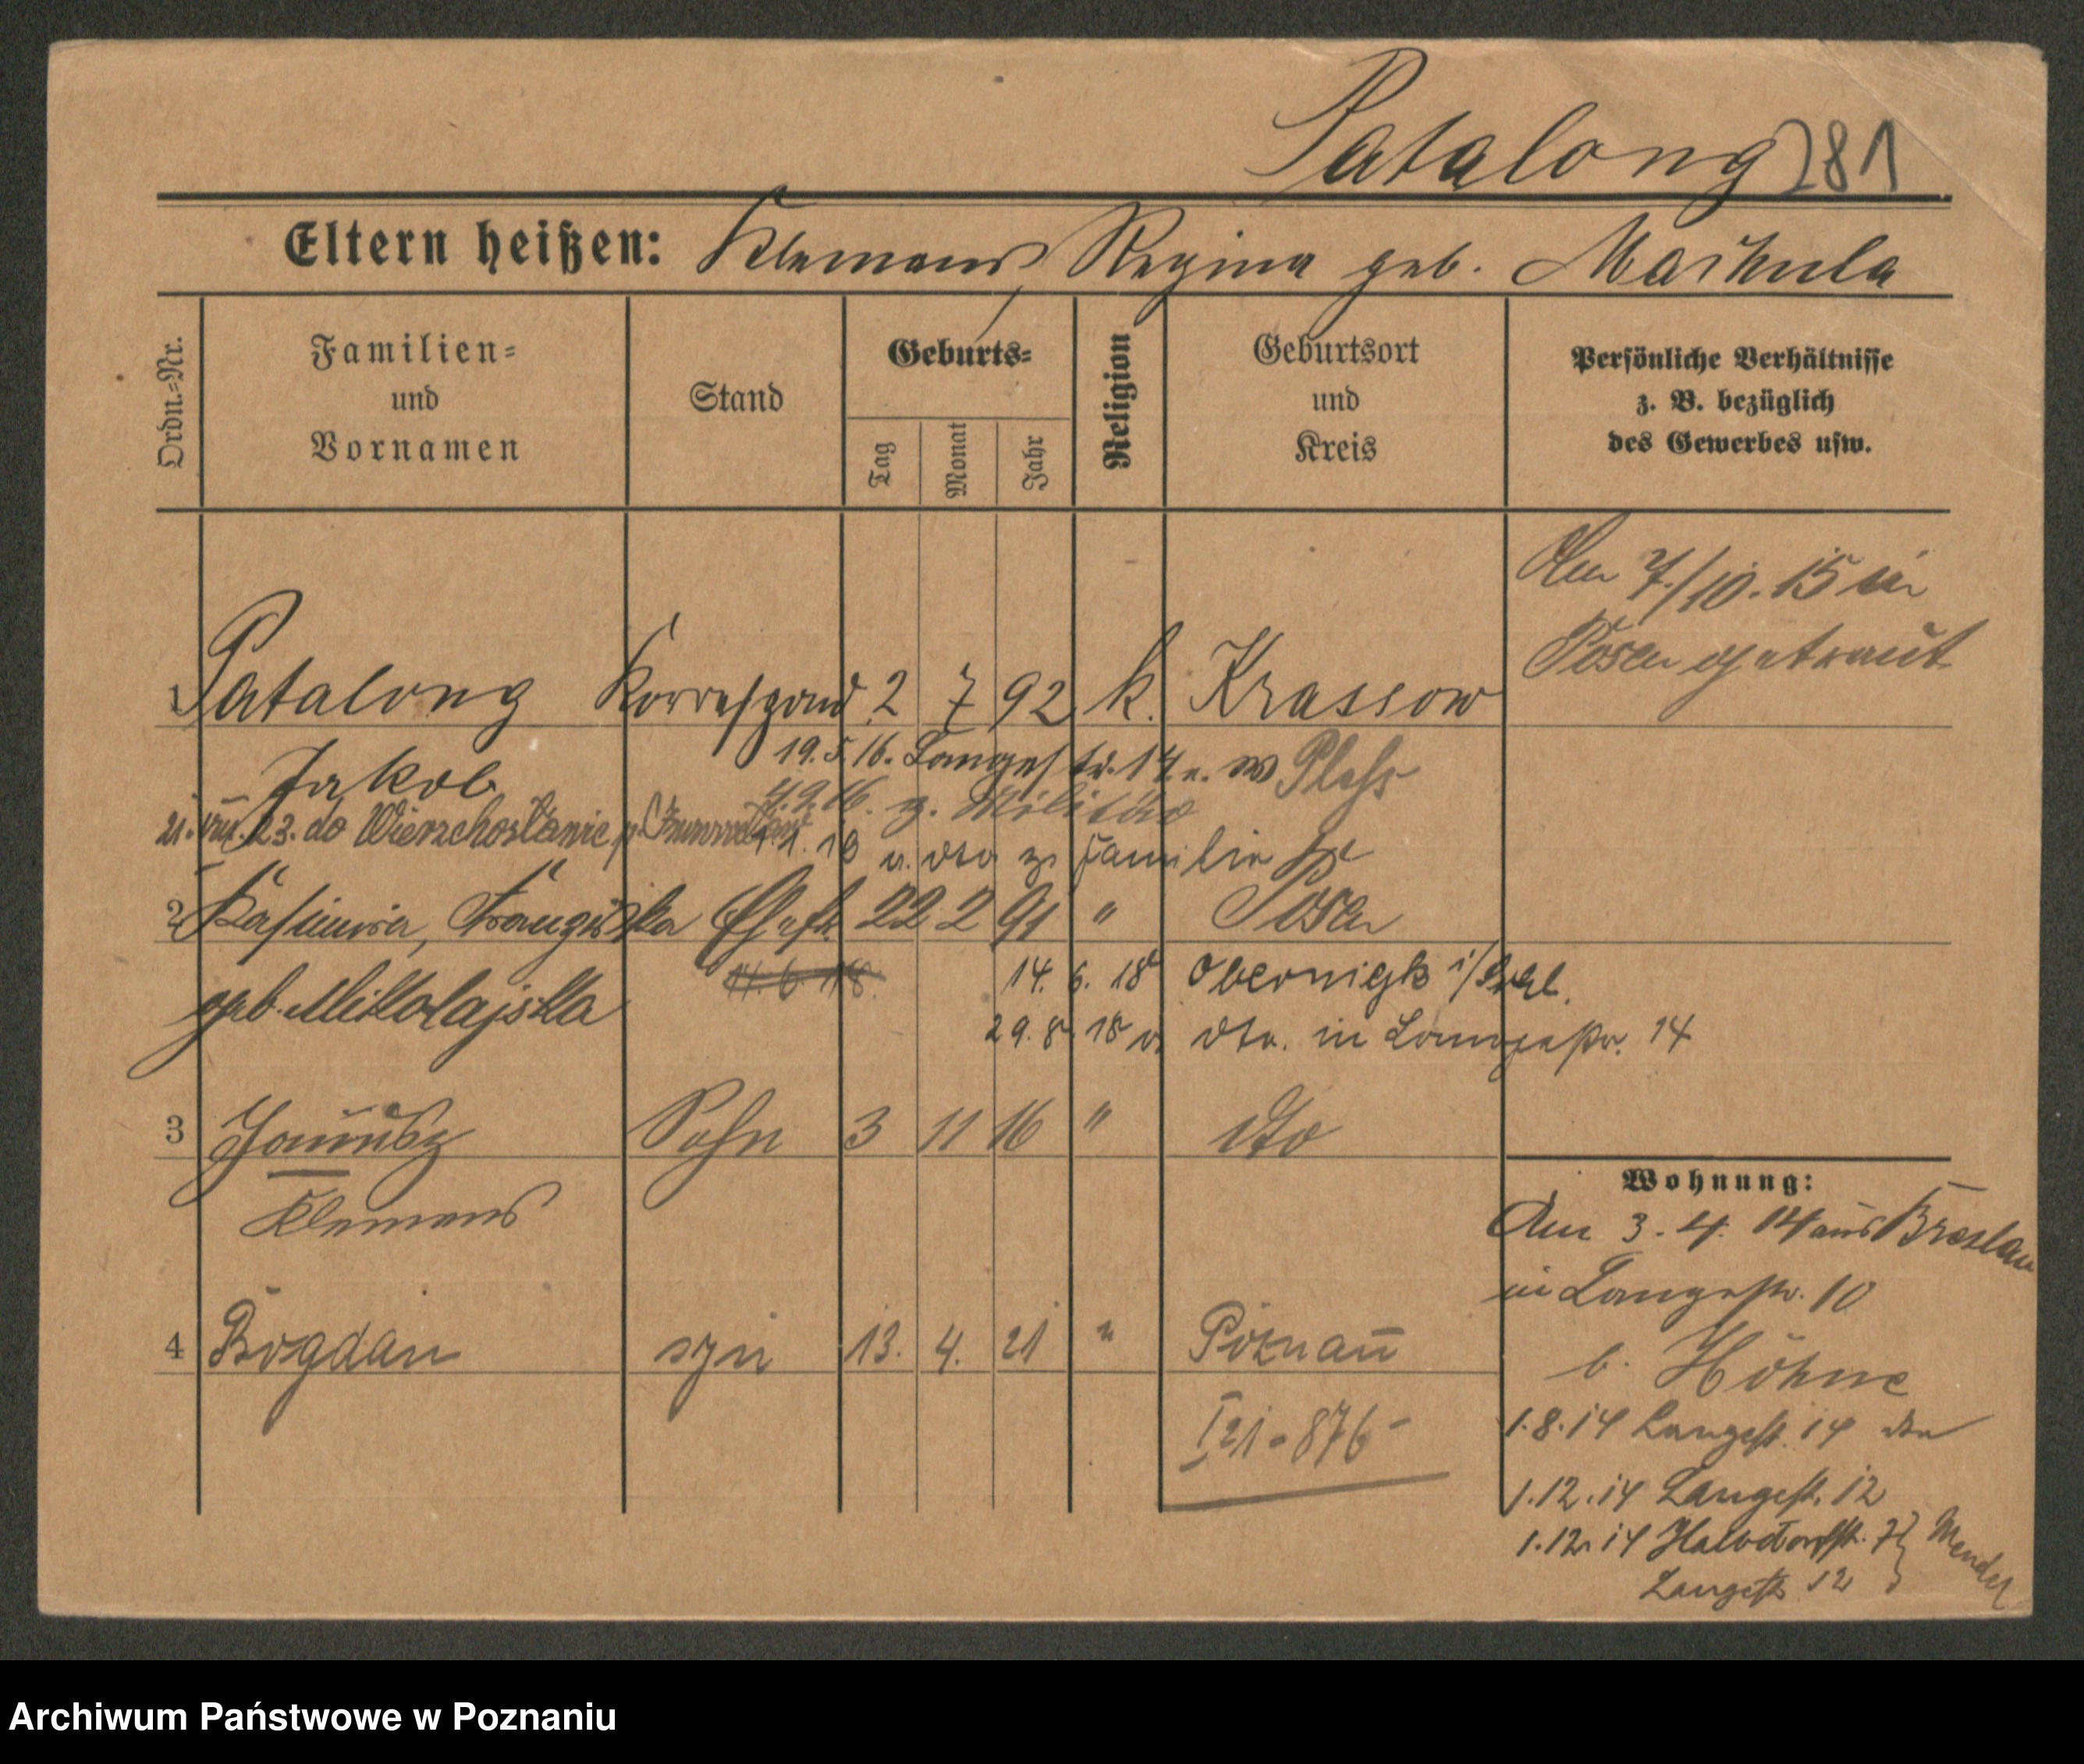 Patalong 281
Eltern heißen: Klemens, Regina geb. Maikula
Ordn.-Nr.
Familien-
und
Vornamen
Stand
Geburts-
Tag
Monat
Jahr
Religion
Geburtsort
und
Kreis
Persönliche Verhältnisse
z. B. bezüglich
des Gewerbes usw.
Am 7/10.15 in
Posen getraut
1 Patalong Korrespond. 2 7 92 k. Krassow
Jakob
19.5.16. Langestr. 14 Pless
4.9.16. z. Militär
21. VIII. 23. do Wierzchosławic p.
1. 18 v. dto z. Familie
2 Kasimira, Franziska Ehefr. 22 2 91 " Posen
geb. Mikolajska
14. 6. 18.
14. 6. 18 Obernigk i/Schl.
29. 8. 18 v. dto. in Langestr. 14
3 Janusz Sohn 3 11 16 " dto
Klemens
4 Bogdan syn 13. 4. 21 " Poznań
I 21 - 876 -
Wohnung:
Am 3. 4. 14 aus Breslau
in Langestr. 10
b. Höhne
1.8.14 Langestr. 14
1.12.14 Langestr. 12
1.12.14 Halbdorfstr. 7 } Mendel
Langestr. 12
Archiwum Państwowe w Poznaniu